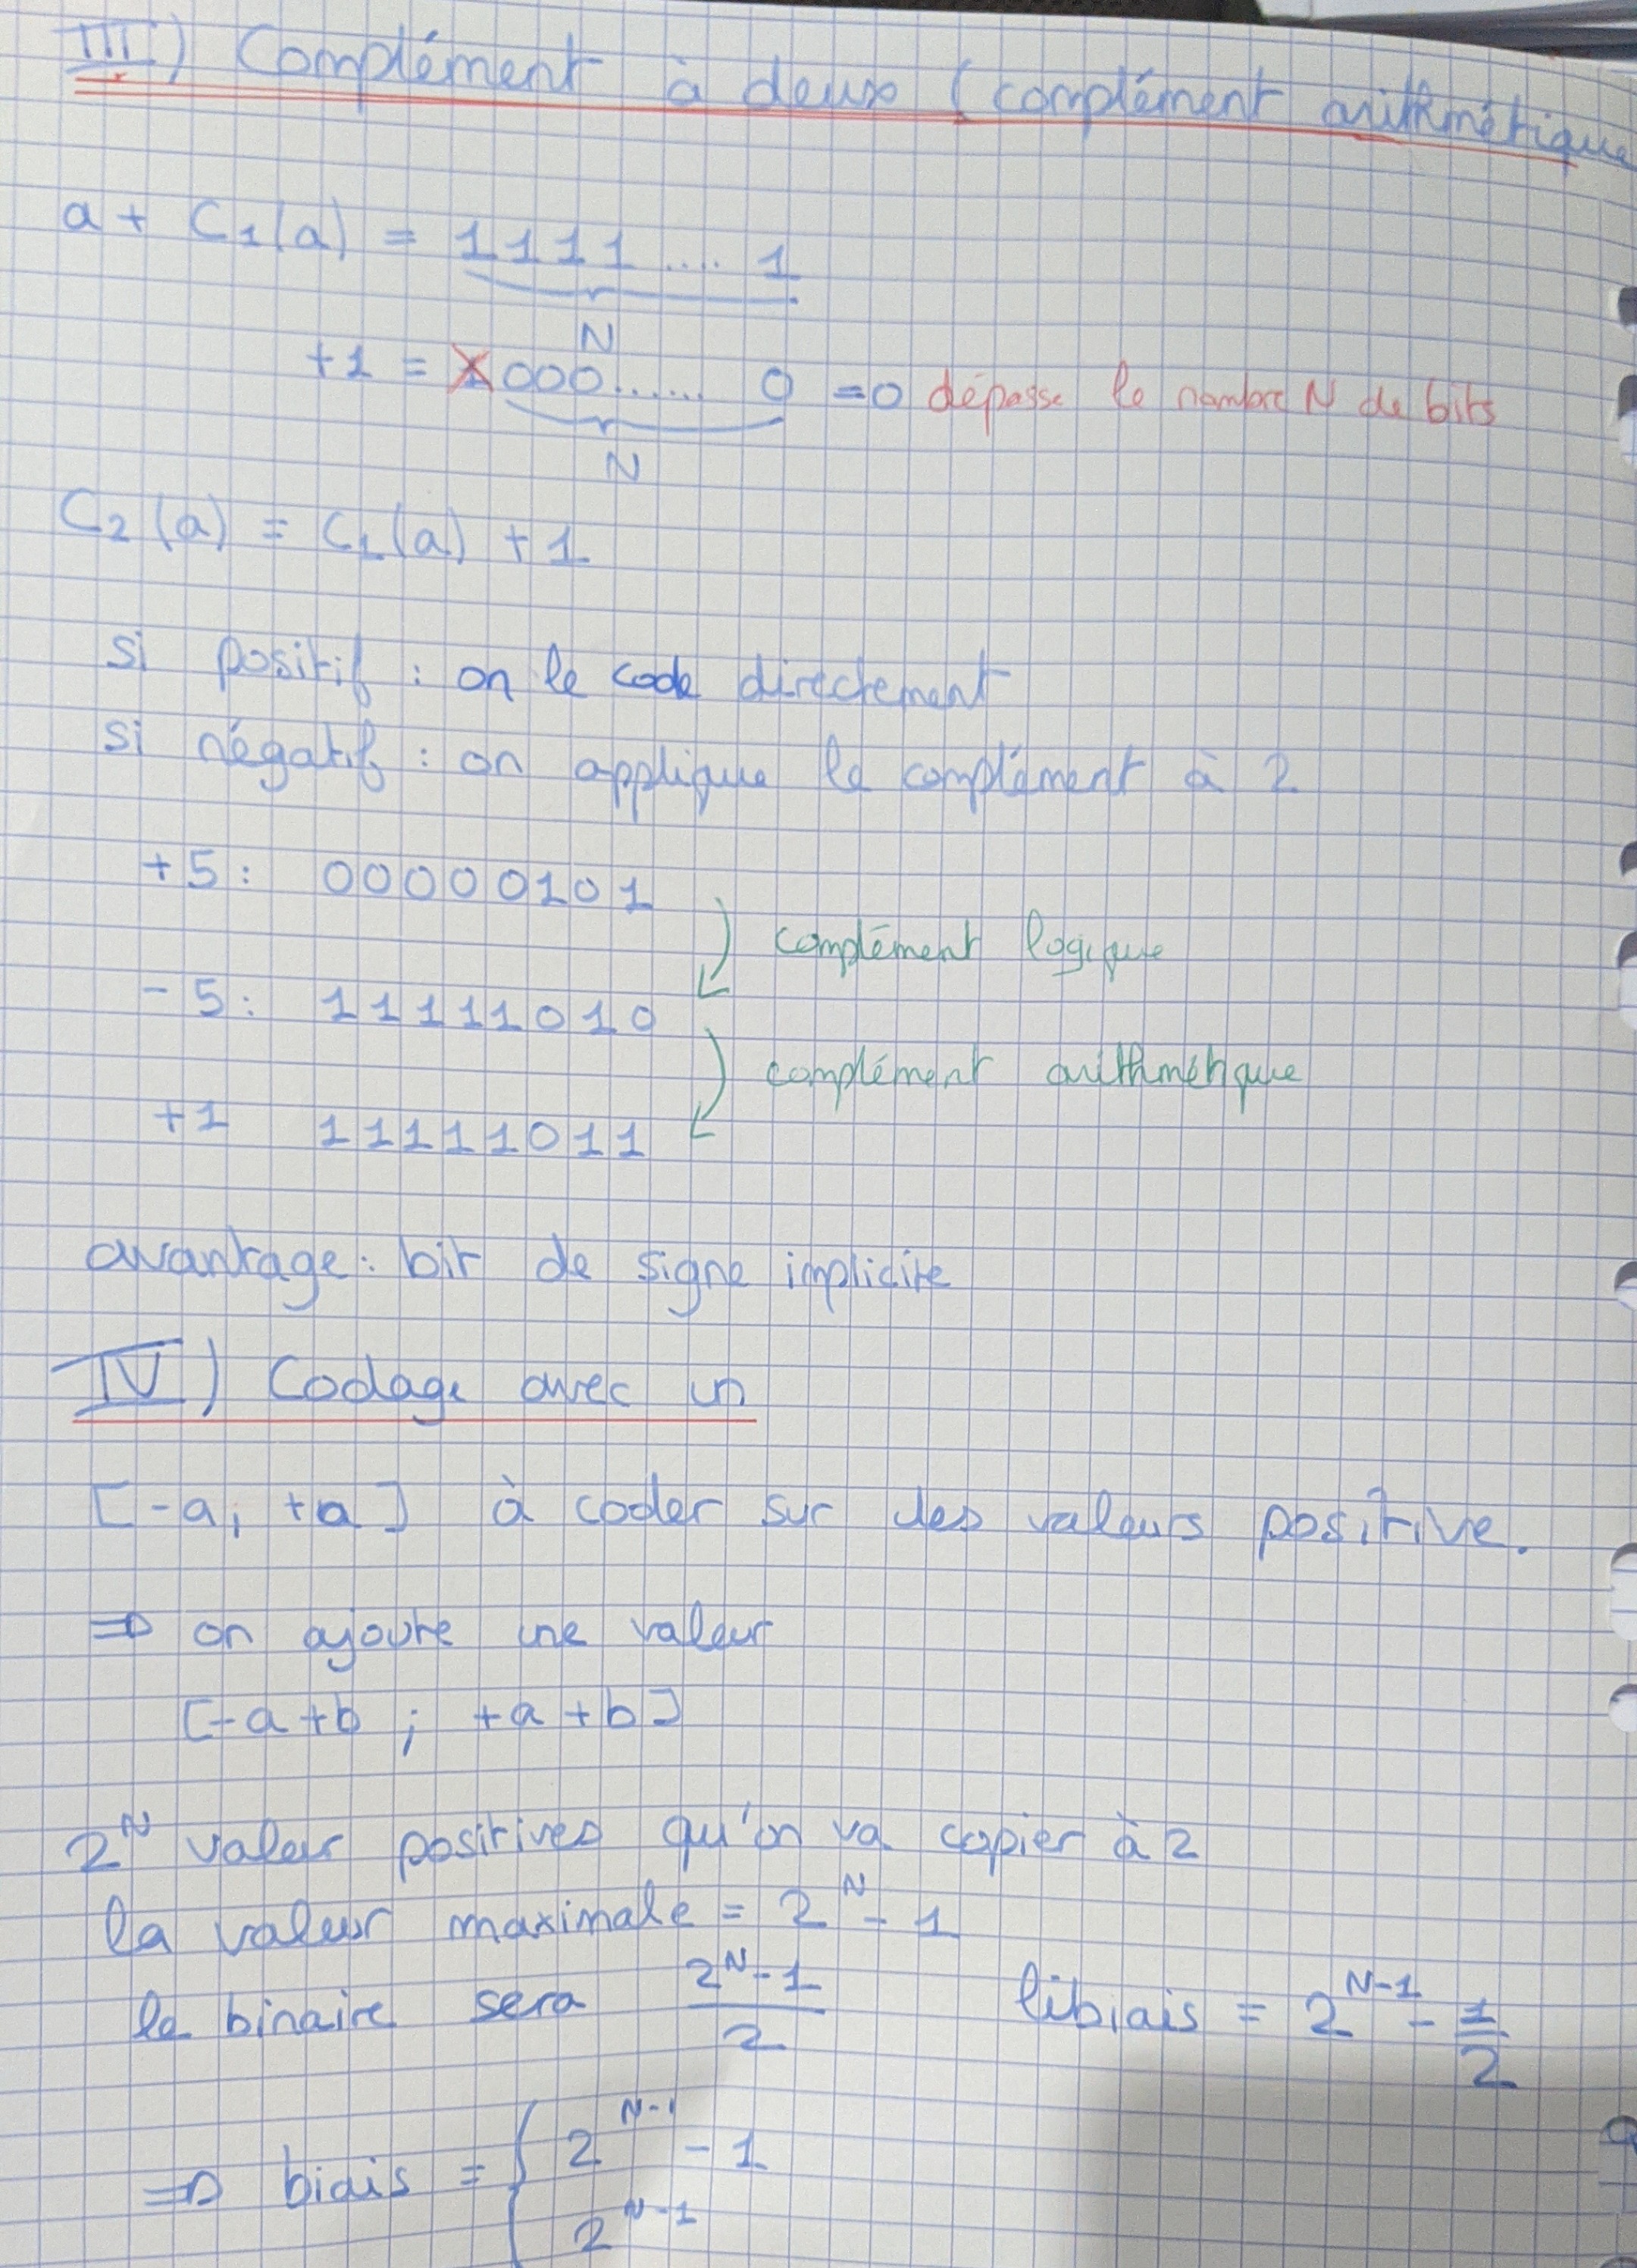 III) Complément à deux (complément arithmétique
a + C₁(a) = 1111 .... 1
N
+1 = 1000...... 0 = 0 dépasse le nombre N de bits
N
C₂(a) = C₁(a) + 1
si positif : on le code directement
si négatif : on applique le complément à 2
+5: 00000101
complément logique
-5: 11111010
complément arithmétique
+1 11111011
avantage: bit de signe implicite
IV) Codage avec un
[-a; +a] à coder sur des valeurs positive.
⇒ on ajoute une valeur
[-a+b ; +a+b]
2^N valeur positives qu'on va copier à 2
la valeur maximale = 2^N - 1
le binaire sera (2^N - 1)/2 libiais = 2^(N-1) - 1/2
⇒ biais = { 2^(N-1) - 1
2^(N-1)